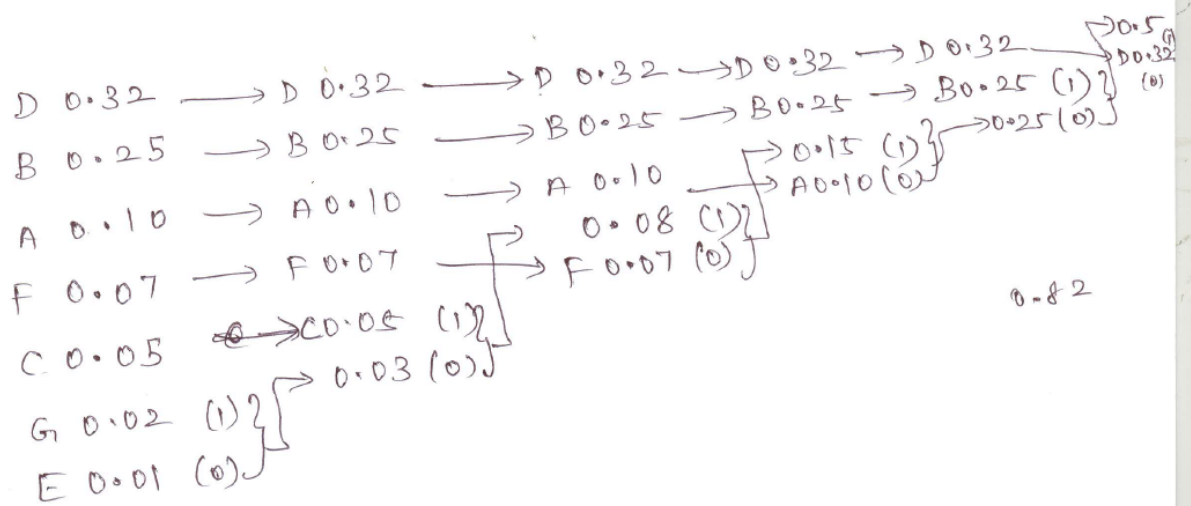 D 0.32 → D 0.32 → D 0.32 → D 0.32 → D 0.32 → 0.5 (1)
D 0.32 (0)
B 0.25 → B 0.25 → B 0.25 → B 0.25 → B 0.25 (1)
A 0.10 → A 0.10 → A 0.10 → 0.15 (1) → 0.25 (0)
A 0.10 (0)
F 0.07 → F 0.07 → 0.08 (1)
F 0.07 (0)
C 0.05 → C 0.05 (1)
0.82
G 0.02 (1) → 0.03 (0)
E 0.01 (0)